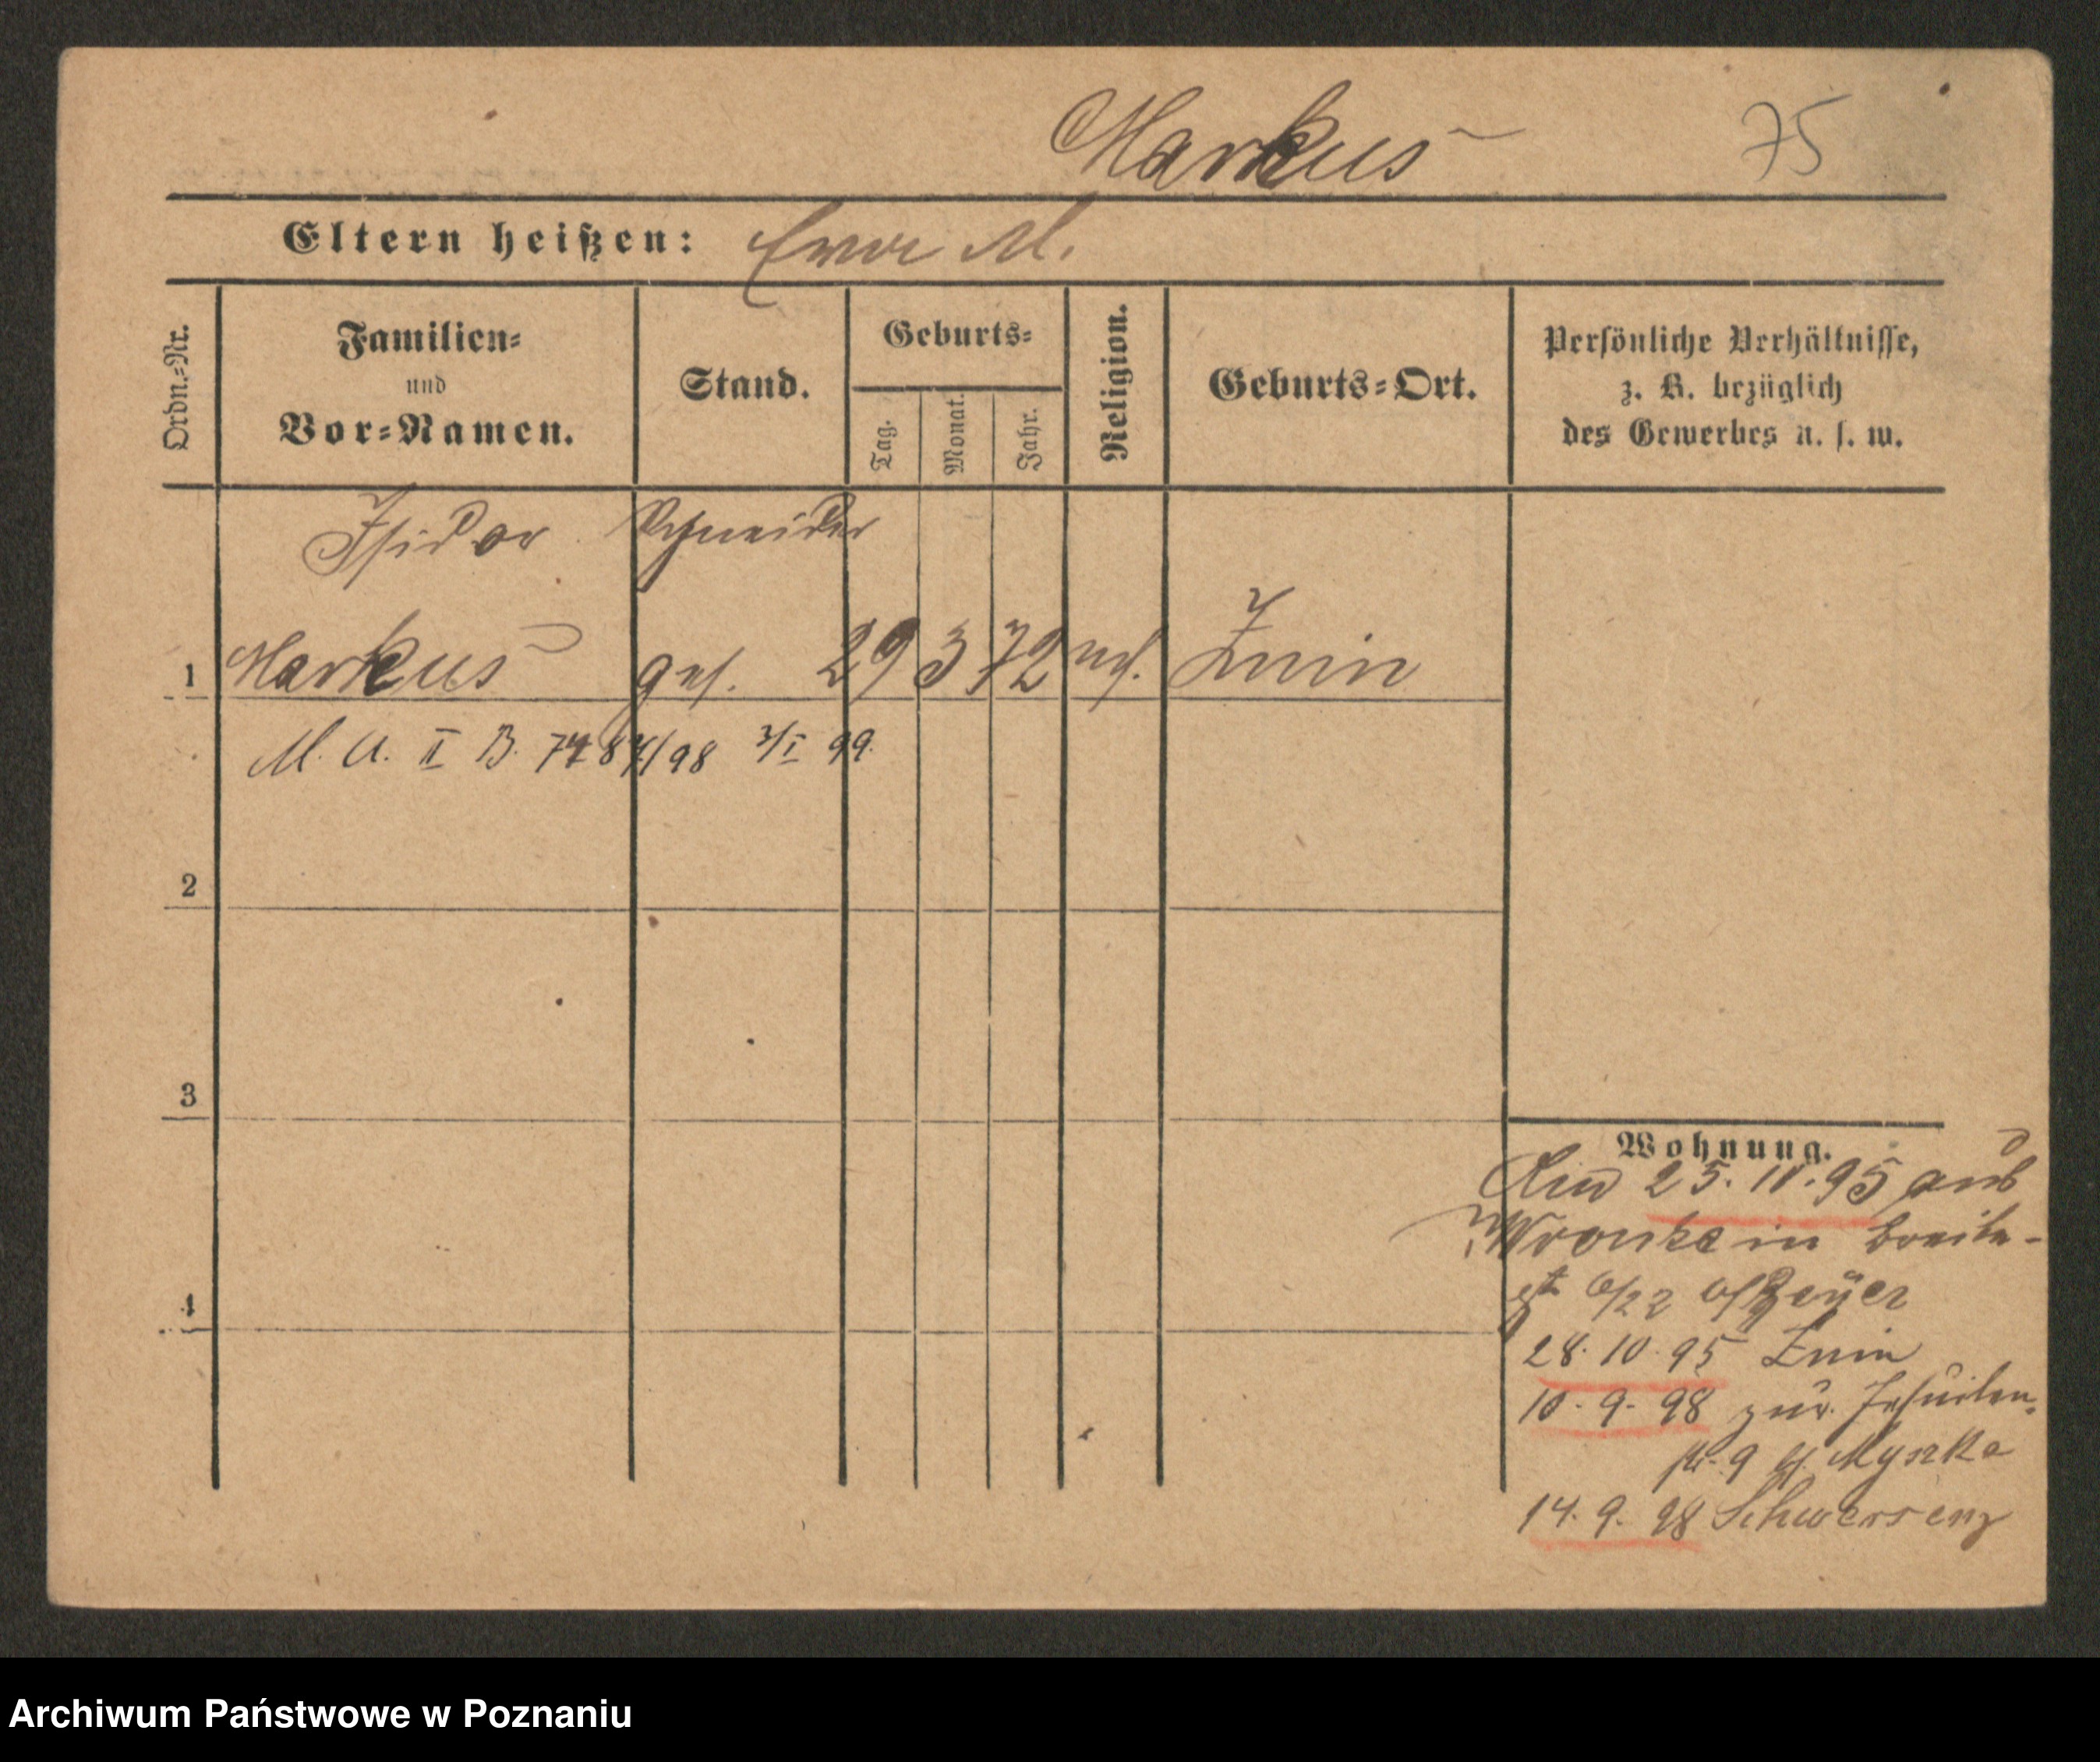 Markus 75
Eltern heißen: M.
Ordn.-Nr.
Familien-
und
Vor-Namen.
Stand.
Geburts-
Tag.
Monat.
Jahr.
Religion.
Geburts-Ort.
Persönliche Verhältnisse,
z. B. bezüglich
des Gewerbes u. s. w.
Isidor Schneider
1 Markus ges. 29 3 72 Znin
M. A. II B. /98 3/I 99.
2
3
4
Wohnung.
25. 10. 95 aus
Wronke in Breite-
28. 10. 95 Znin
10. 9. 98 zur. Jesuiten-
str. 9 b/ Myszka
14. 9. 98 Schwersenz
Archiwum Państwowe w Poznaniu